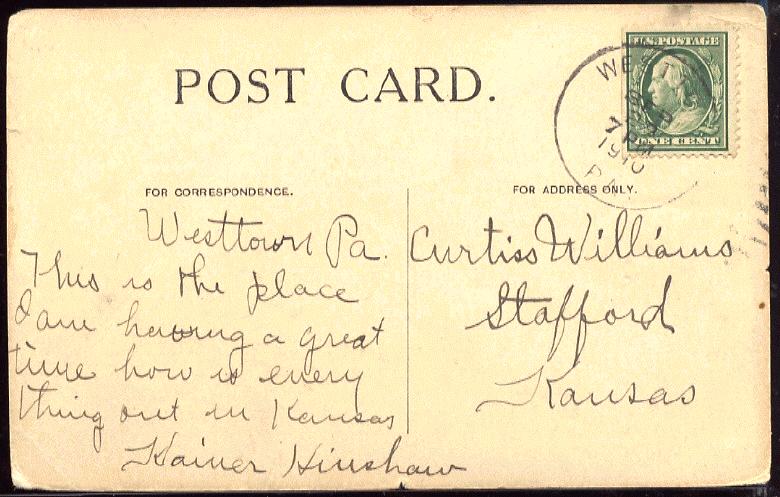 POST CARD.
U.S. POSTAGE
ONE CENT
WE
7 PM
1910
PA
FOR CORRESPONDENCE.
Westtown Pa.
This is the place
I am having a great
time how is every
thing out in Kansas
Hinshaw
FOR ADDRESS ONLY.
Curtiss Williams
Stafford
Kansas